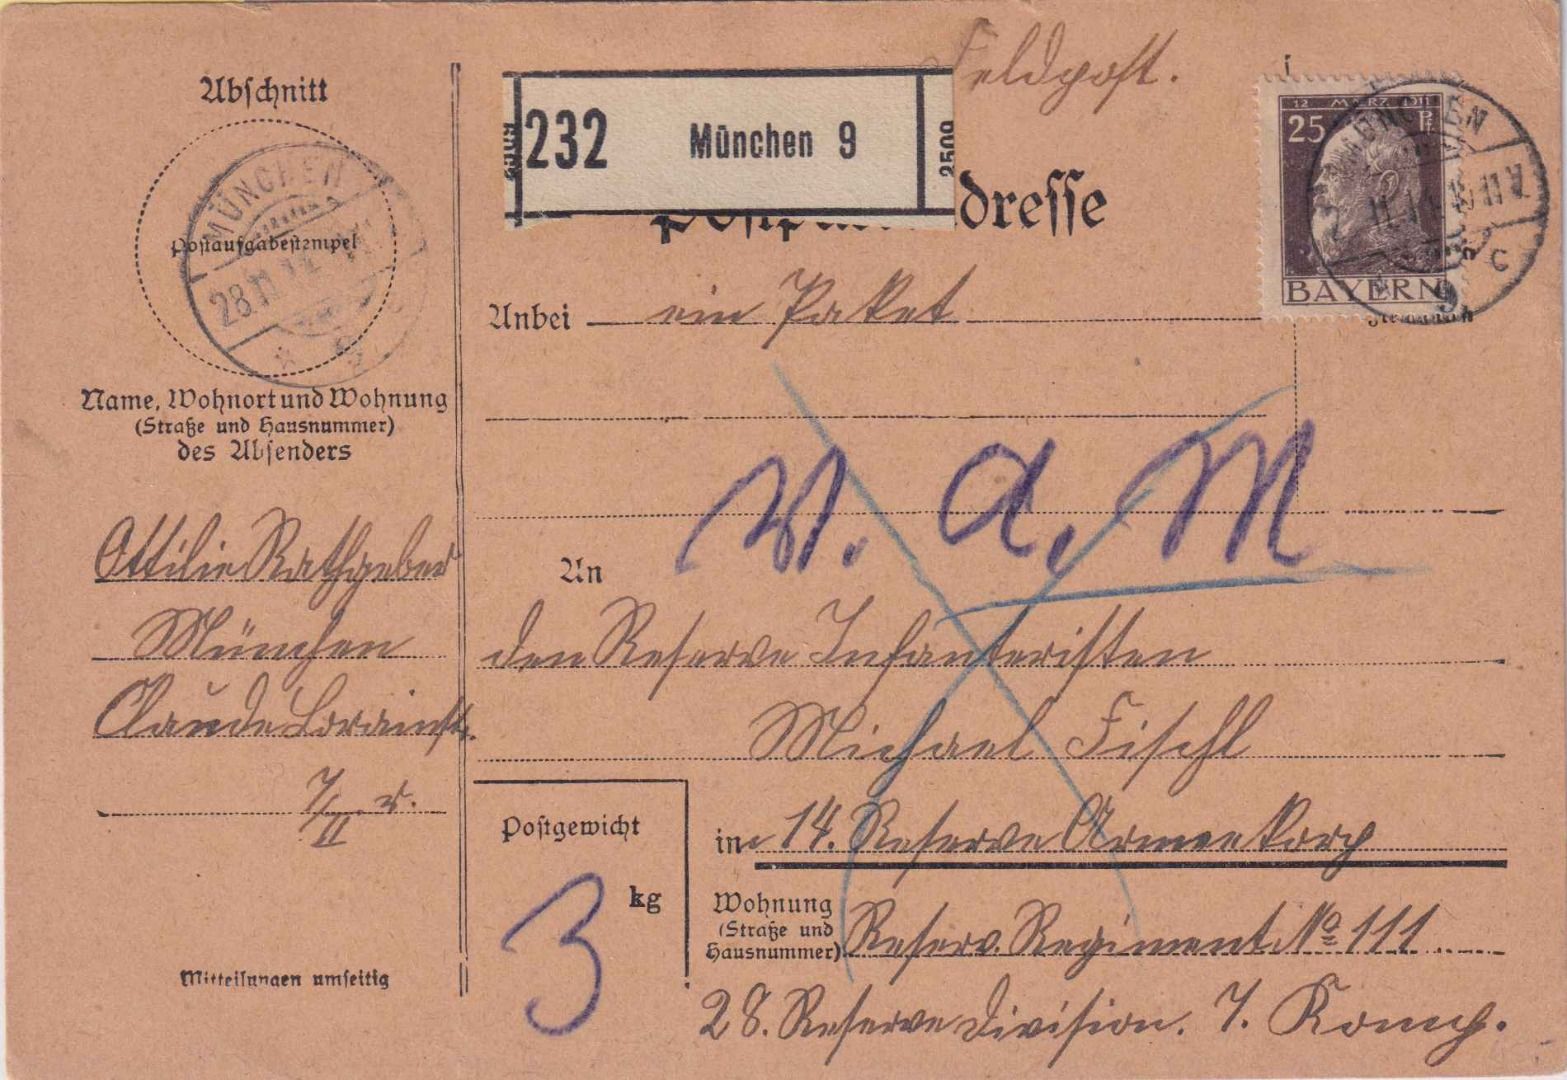 Abschnitt
MÜNCHEN
Postaufgabestempel
28.11.14
Name, Wohnort und Wohnung
(Straße und Hausnummer)
des Absenders
Ottilie Rathgeber
München
Claude Lorrainstr.
7/II r.
Mitteilungen umseitig
Feldpost.
2509 232 München 9 2509
dresse
12 MÄRZ 1911
25 Pf
BAYERN
MÜNCHEN
Anbei ein Paket
W. a. M
An
den Reserve Infanteristen
Michael Fischl
in 14. Reserve Armeekorp
Postgewicht
3 kg
Wohnung
(Straße und
Hausnummer)
Reserv. Regiment. No 111
28. Reserve Division. 7. Komp.